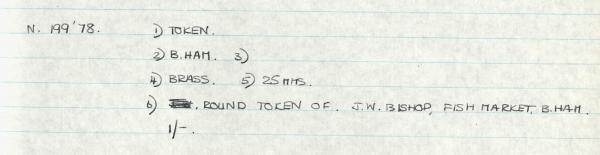 N. 199'78. 1) TOKEN.
2) B.HAM. 3)
4) BRASS. 5) 25 MMS.
6) . ROUND TOKEN OF. J.W. BISHOP, FISH MARKET, B.HAM.
1/-.